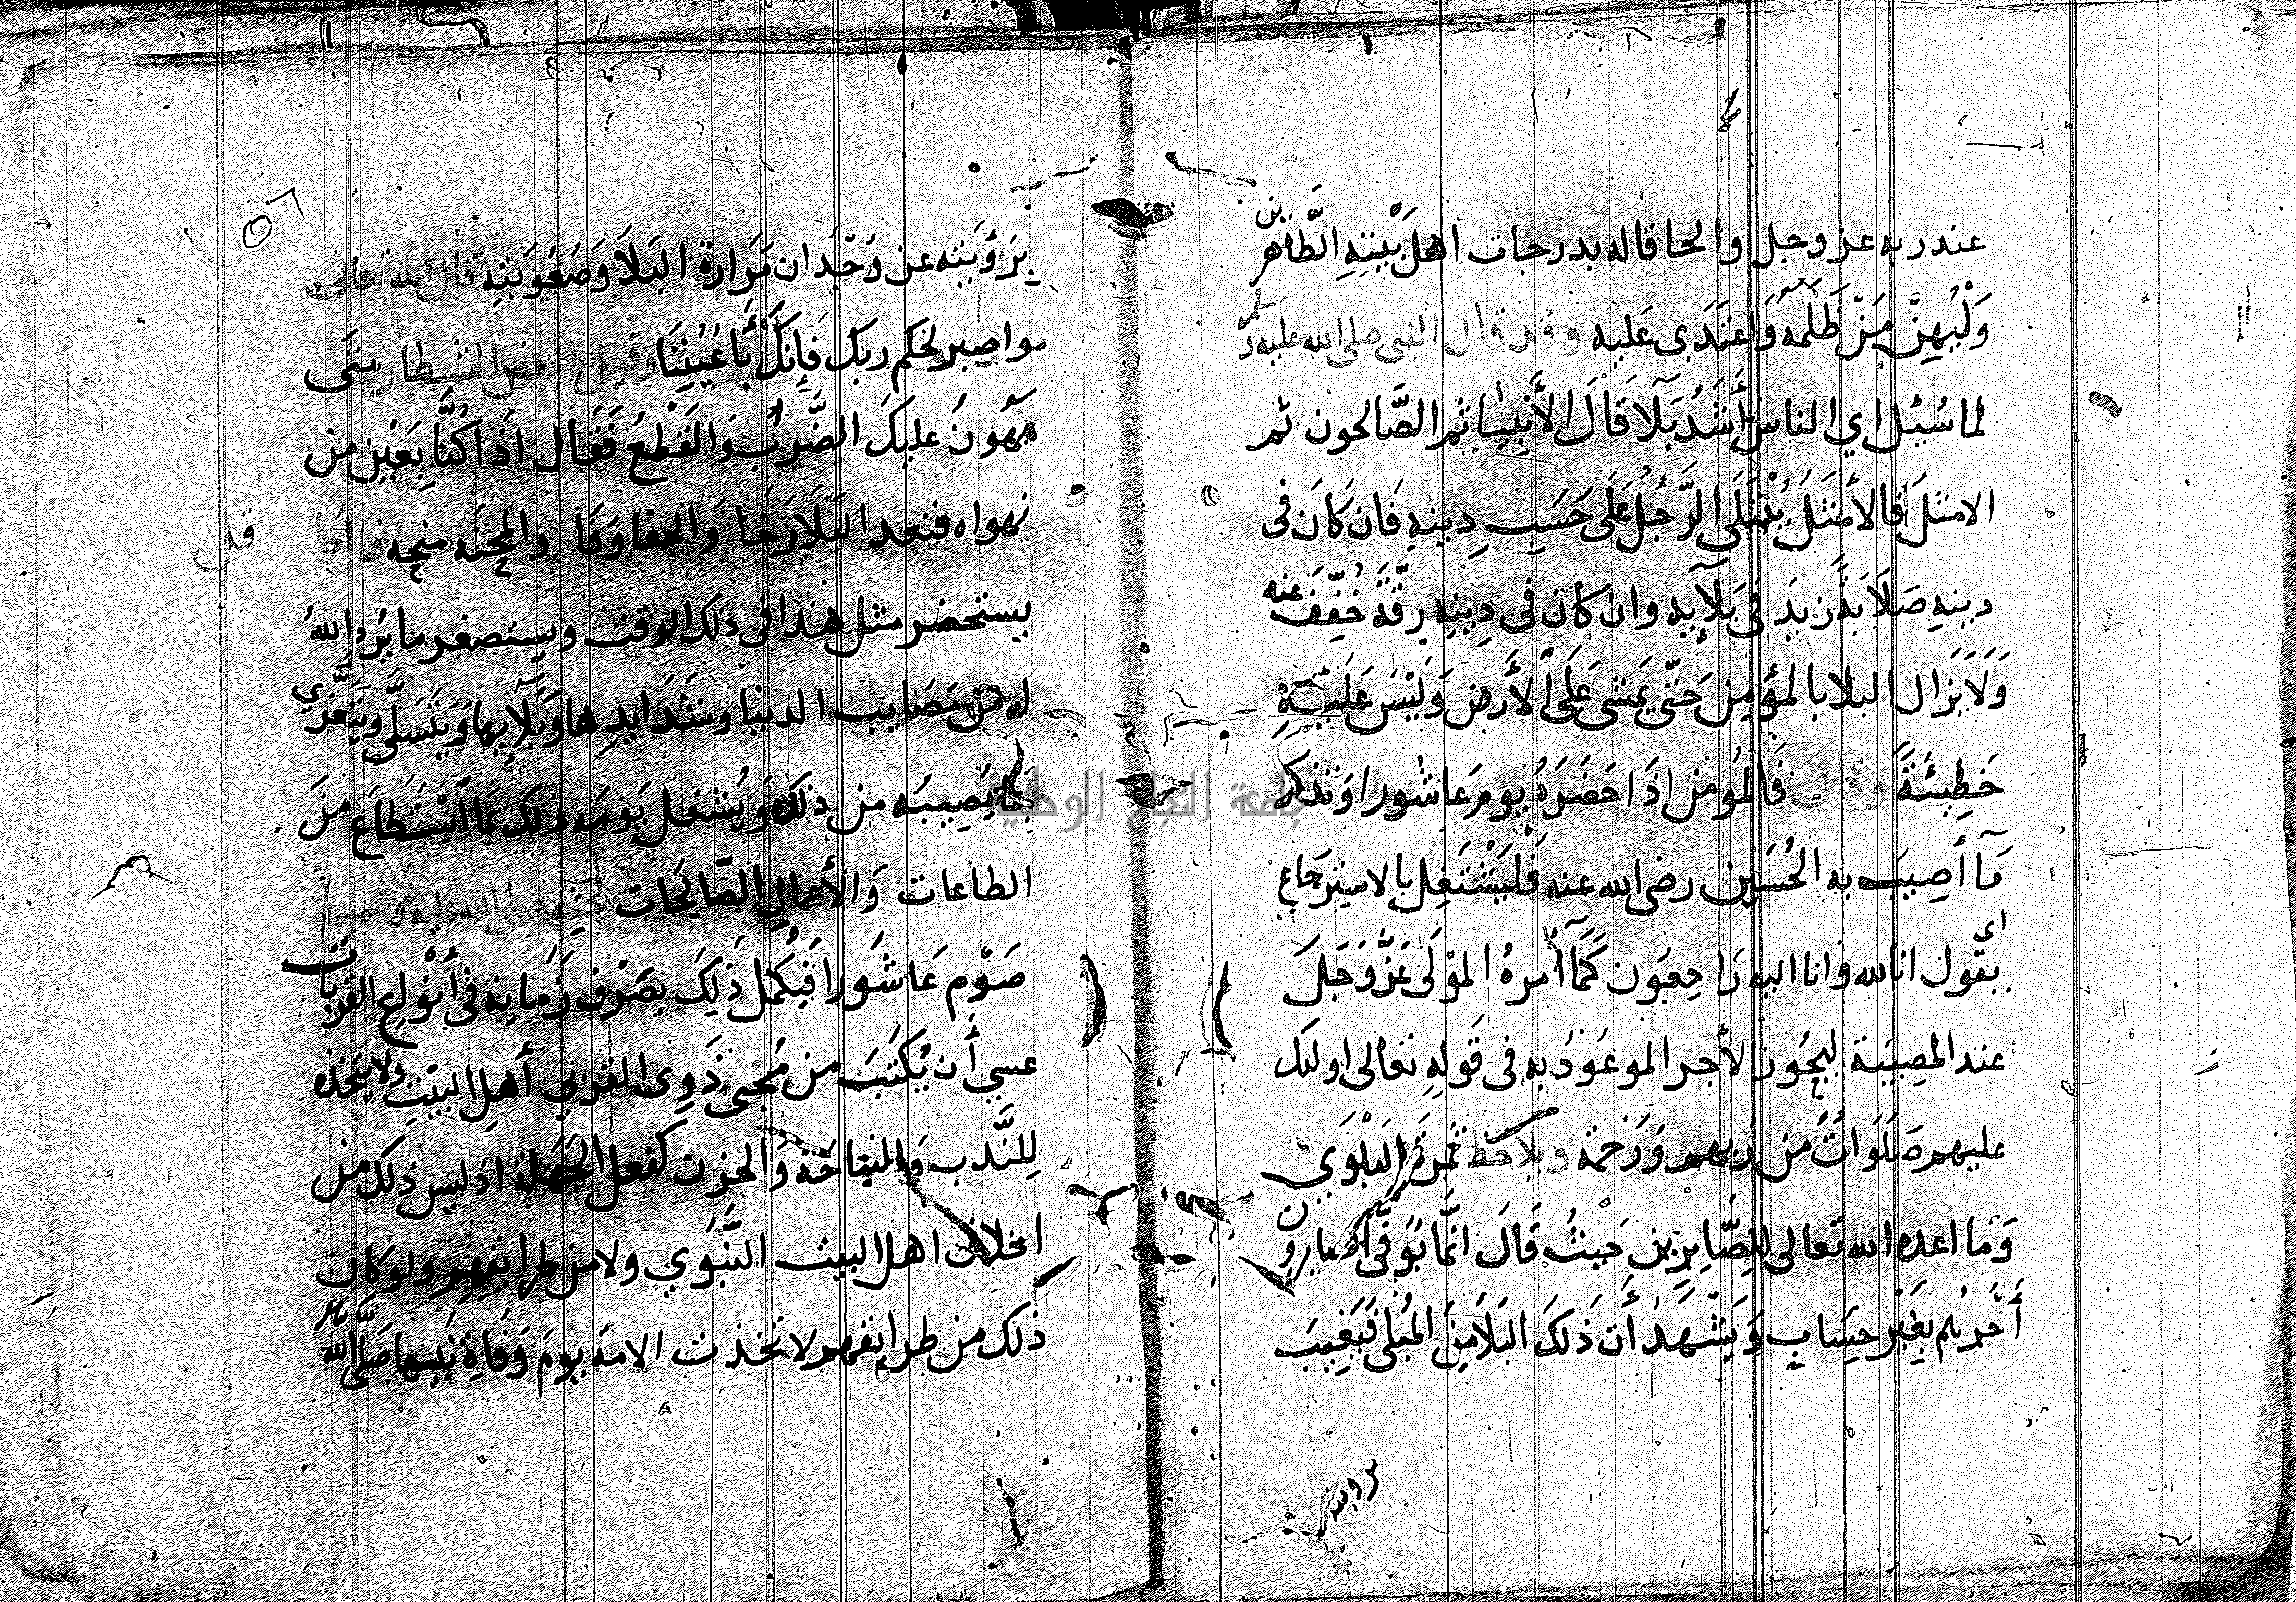 عند ربه عز وجل والحاقا له بدرجات اهل بَيْتِهِ الطّاهرين
وَلْيُهِنْ مَنْ ظَلَمَهُ وَاعْتَدَى عَليه وقد قال النبي صلى الله عليه وسلم
لما سُئل اي الناس أَشَدُ بَلَآ قَالَ الأَنبِيَا ثم الصَّالحون ثم
الامثل فالأمثَل يُبْتَلَى الرَّجُلُ عَلَى حَسَبِ دِينِهِ فَان كَانَ فى
دينِهِ صَلَابَةٌ زيدَ فى بَلَآيِهِ وان كان فى دِينِهِ رِقَّةٌ خُفِّفَ عنه
وَلَا يَزَال البلا بالمؤمِن حَتّى يمشى عَلَى الأَرضِ وَلَيْسَ عَلَيْهِ
خَطِيئَةٌ وقال فَالمُؤمن اذَا حَضَرَهُ يوم عَاشُورا وَتذكر
مَآ أُصِيبَ به الحُسَين رضى الله عنه فَلْيَشْتَغِل بالاسترجَاع
اى يقول انا لله وانا اليه رَاجِعُون كَمَآ أمرهُ المَوْلَى عَزَّ وَجَلَ
عند المصِيبَة ليحُوز الأجر الموعُود به فى قَولِهِ تعالى اوليك
عليهم صَلَوَاتٌ من ربهم وَرَحْمَة ويلاحظ ثمرَة البَلْوَي
وَما اعده الله تعالى للِصَّابِرِين حَيثُ قَالَ انَّما يُوَفَّى الصابرون
أَجْرَهُم بِغَيْرِ حِسَابٍ وَيَشْهَدُ أَن ذَلكَ البَلَا مِنَ المُبْلى فَيَغِيبَ
برويته
بِرُؤيَتِه عن وُجْدَان مَرَارَة البَلَا وَصُعُوبَتِهِ قال الله تعالى
واصبر لحكم ربك فَإِنكَ بِأَعْيُنِنَا وقيل لبعض الشطار متَى
يَهُونُ عليكَ الضَّربُ وَالقَطعُ فَقَال اذَا كُنَّا بِعَيْن من
نهواه فنعد البَلَا رَخَا وَالجفا وَفَا والمِحْنَه منحه
يستحضر مثل هذا فى ذلك الوقت ويستصغر ما يَرد الله
له من مَصَايب الدنيا وشَدَايدِها وَبَلَآيِها وَيَتَسَلَّى وَيَتَعَزّي
بِمَا يُصِيبَه من ذلك وَيُشغل يَومَه ذلك بما اسْتَطَاعَ منَ
الطاعات وَالأَعمالِ الصّالحَات لحثِّه صلى الله عليه وسلم على
صَوْم عَاشُورا فَيُكمل ذَلِكَ بصَرْف زَمَانِه فى أنْواع القربات
عسي أَن يُكتَبَ من مُحِبى ذَوِى القربي أهلِ البَيْتِ ولا يتخذه
لِلنَّدب وَالنياحَةِ وَالحزن كفعل الجَهَلَة اذ ليس ذلك من
اخلاق اهل البيت النَّبَوي ولا من طرايقِهِم ولو كان
ذلك من طرايقهم لاتخذت الامة يومَ وَفَاةِ نَبيها صَلَّى الله